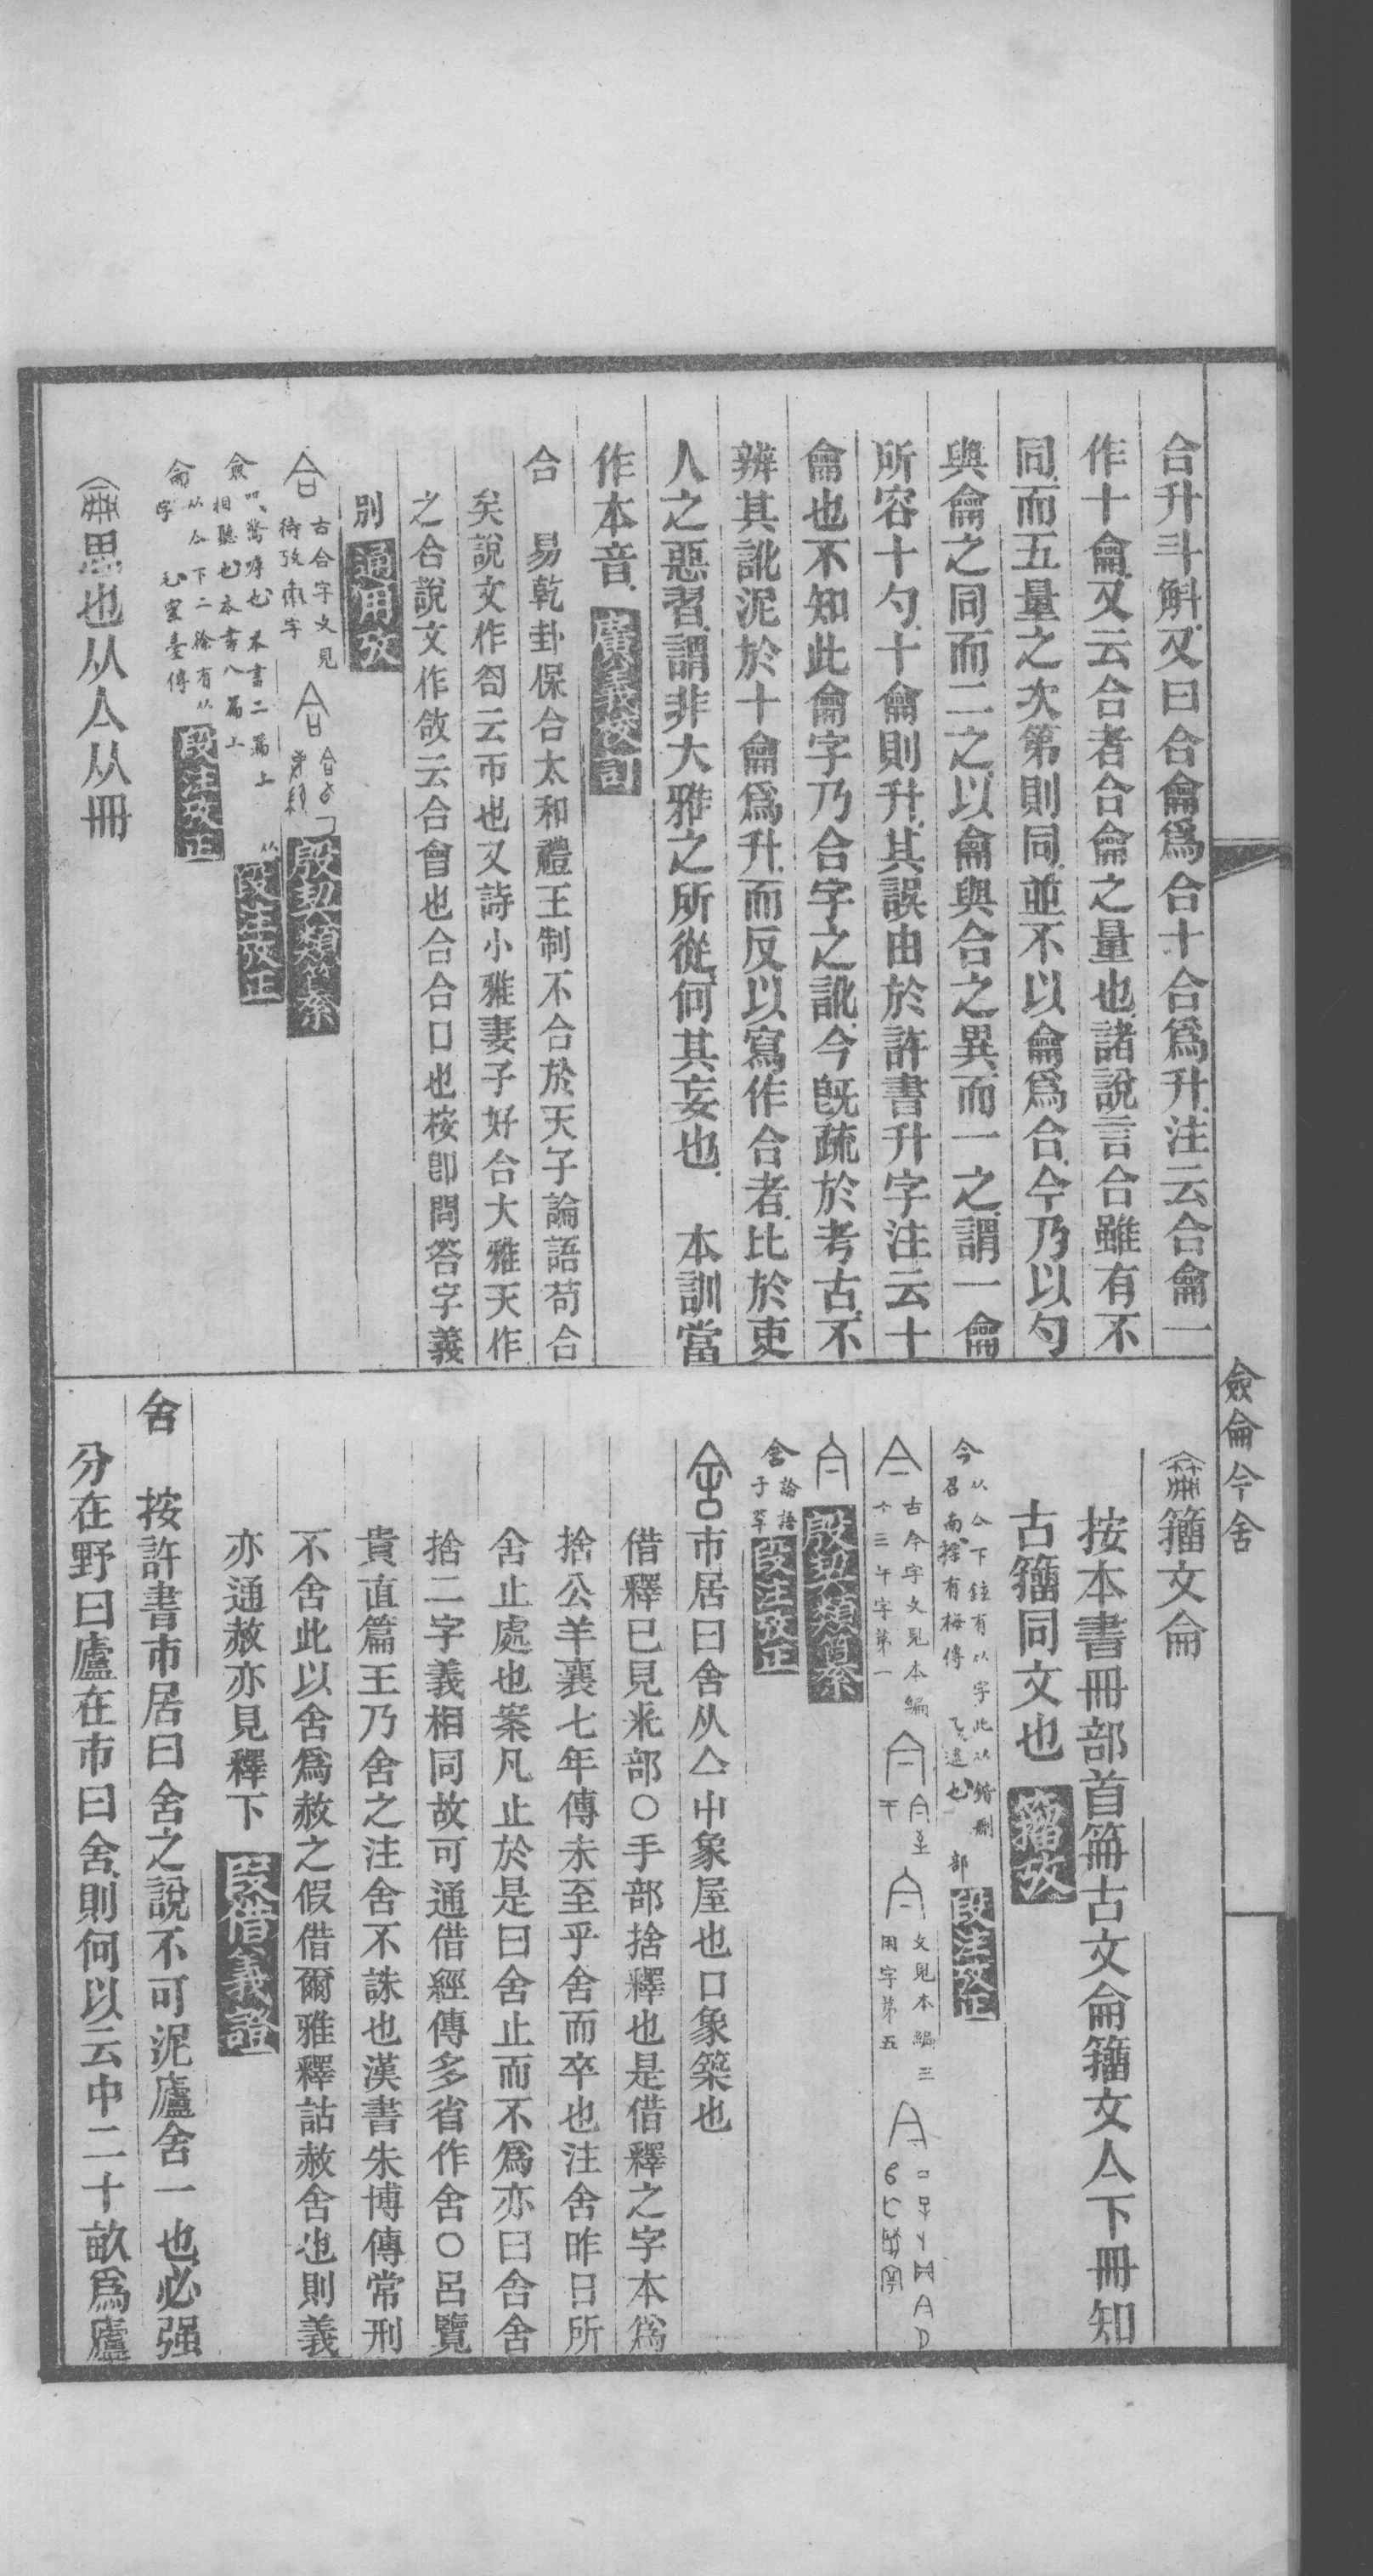 合升斗斛又曰合龠爲合十合爲升注云合龠一
作十龠又云合者合龠之量也諸說言合雖有不
同而五量之次第則同並不以龠爲合今乃以勺
與龠之同而二之以龠與合之異而一之謂一龠
所容十勺十龠則升其誤由於許書升字注云十
龠也不知此龠字乃合字之訛今旣疏於考古不
辨其訛泥於十龠爲升而反以寫作合者比於吏
人之惡習謂非大雅之所從何其妄也 本訓當
作本音 廣義校訂
合 易乾卦保合太和禮王制不合於天子論語苟合
矣說文作匌云帀也又詩小雅妻子好合大雅天作
之合說文作敆云合會也合合口也按卽問答字義
別 通用攷
古合字文見
待攷 字
殷契類纂
僉 吅驚嘑也本書二篇上 从
相聽也本書八篇上
段注攷正
侖 从亼下二徐有从
字 毛靈臺傳
段注攷正
思也从亼从冊
僉侖今舍
籀文侖
按本書冊部首笧古文侖籀文亼下冊知
古籀同文也 籀攷
今 从亼下鉉有从字此从鍇刪
召南摽有梅傳 乁逮也 部
段注攷正
古今字文見本編
十三午字第一
文見本編三
用字第五
殷契類纂
舍 論語
子罕
段注攷正
市居曰舍从亼屮象屋也口象築也
借釋已見釆部○手部捨釋也是借釋之字本爲
捨公羊襄七年傳未至乎舍而卒也注舍昨日所
舍止處也案凡止於是曰舍止而不爲亦曰舍舍
捨二字義相同故可通借經傳多省作舍○呂覽
貴直篇王乃舍之注舍不誅也漢書朱博傳常刑
不舍此以舍爲赦之假借爾雅釋詁赦舍也則義
亦通赦亦見釋下 段借義證
舍 按許書市居曰舍之說不可泥廬舍一也必强
分在野曰廬在市曰舍則何以云中二十畝爲廬